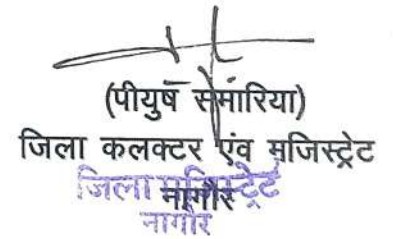 (पीयुष समारिया)
जिला कलक्टर एंव मजिस्ट्रेट
नागौर
जिला मजिस्ट्रेट
नागौर